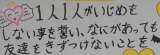 1人1人がいじめを
しない事を誓い、なにがあっても
友達をきずつけないことを